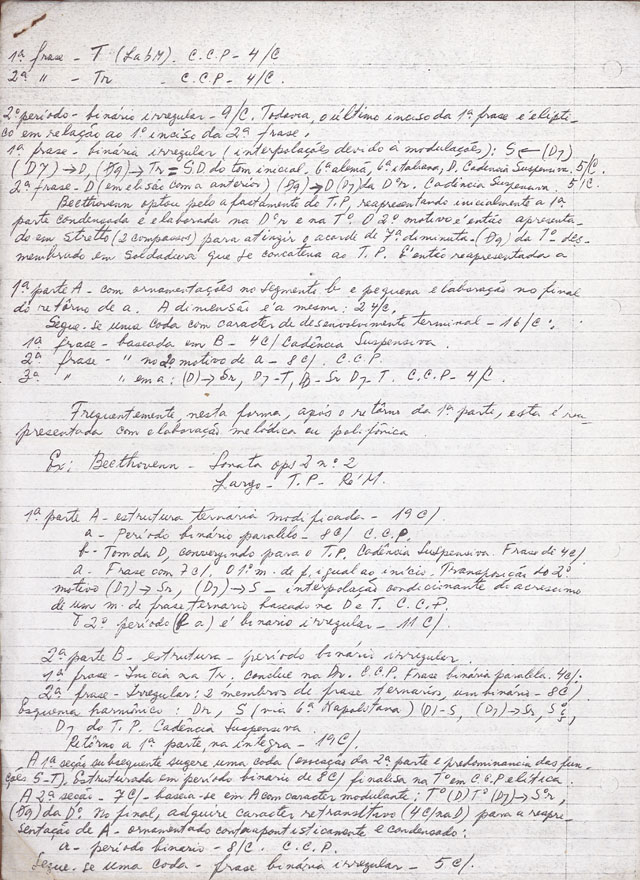 1ª frase - T (LabM). C.C.P - 4/C
2ª " - Tr C.C.P - 4/C.
2º período - binário irregular - 9/C. Todavia, o último inciso da 1ª frase é elípti-
co em relação ao 1º inciso da 2ª frase.
1ª frase - binária irregular (interpolações devido a modulações): S ← (D7)
(D7) → D, (D9) → Tr = S.D do tom inicial. 6ª alemã, 6ª italiana, D. Cadencia Suspensiva. 5/C.
2ª frase - D (em elisão com a anterior) (D9) → D (D7) da Dºr. Cadência Suspensiva. 5/C.
Beethovenn optou pelo afastamento de T.P, reapresentando inicialmente a 1ª
parte condensada e elaborada na Dºr e na Tº. O 2º motivo é então apresenta
do em stretto (2 compassos) para atingir o acorde de 7ª diminuta - (D9) da Tº des-
membrado em Soldadura que se concatena ao T.P. É então reapresentada a
1ª parte A - com ornamentações no segmento b e pequena elaboração no final
do retôrno de a. A dimensão é a mesma: 24/C.
Segue-se uma Coda com caracter de desenvolvimento terminal - 16/C:
1ª frase - baseada em B - 4C/ Cadência Suspensiva.
2ª frase - " no 2º motivo de a - 8C/. C.C.P
3ª " " em a: (D) → Sr, D7-T, Sr D7-T. C.C.P - 4/C.
Frequentemente, nesta forma, após o retôrno da 1ª parte, esta é rea-
presentada com elaboração melódica ou polifônica.
Ex: Beethovenn - Sonata op 2 nº 2
Largo - T.P - Ré M.
1ª parte A - estrutura ternária modificada - 19C/
a - Período binário paralelo - 8C/ C.C.P.
b - Tom da D, convergindo para o T.P. Cadência Suspensiva. Frase de 4C/
a - Frase com 7C/. O 1º m. de f. igual ao início. Transposição do 2º
motivo (D7) → Sr, (D7) → S - interpolação condicionante di acrescimo
de um m. de frase ternario baseado na D e T. C.C.P.
O 2º período (b a) é binario irregular - 11C/.
2ª parte B - estrutura - período binário irregular
1ª frase - Inicia na Tr, conclue na Dr. C.C.P. Frase binária paralela. 4C/.
2ª frase - Irregular: 2 membros de frase ternarios, um binário - 8C/
Esquema harmônico: Dr, S (via 6ª Napolitana) (D)-S, (D7) → Sr, Sº
D7 do T.P. Cadência Suspensiva.
Retôrno a 1ª parte, na integra - 19C/.
A 1ª seção subsequente sugere uma coda (evocação da 2ª parte e predominancia das fun-
ções S-T). Estruturada em período binario de 8C/ finalisa na Tº em C.C.P elítica.
A 2ª secção - 7C/- baseia-se em A com caracter modulante: Tº (D) Tº (D7) → Sºr,
(D9) da Dº. No final, adquire caracter retransitivo (4C/ na D) para a reapre-
sentação de A - ornamentado contrapontisticamente e condensado:
a - período binario - 8/C. C.C.P.
Segue-se uma coda - frase binária irregular - 5C/.